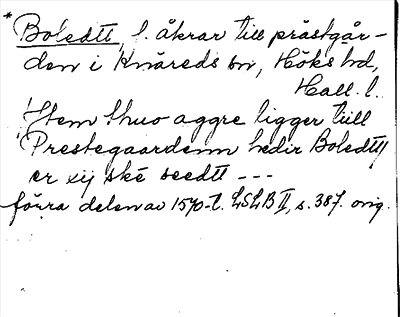 * Boledtt, l. åkrar till prästgår-
den i Knäreds sn, Höks hd,
Hall. l.
"Item thuo aggre ligger tiill
Prestegaardenn hedir Boledtt"
er xij ské seedtt ---
förra delen av 1570-t. LSLB II, s. 387. orig.